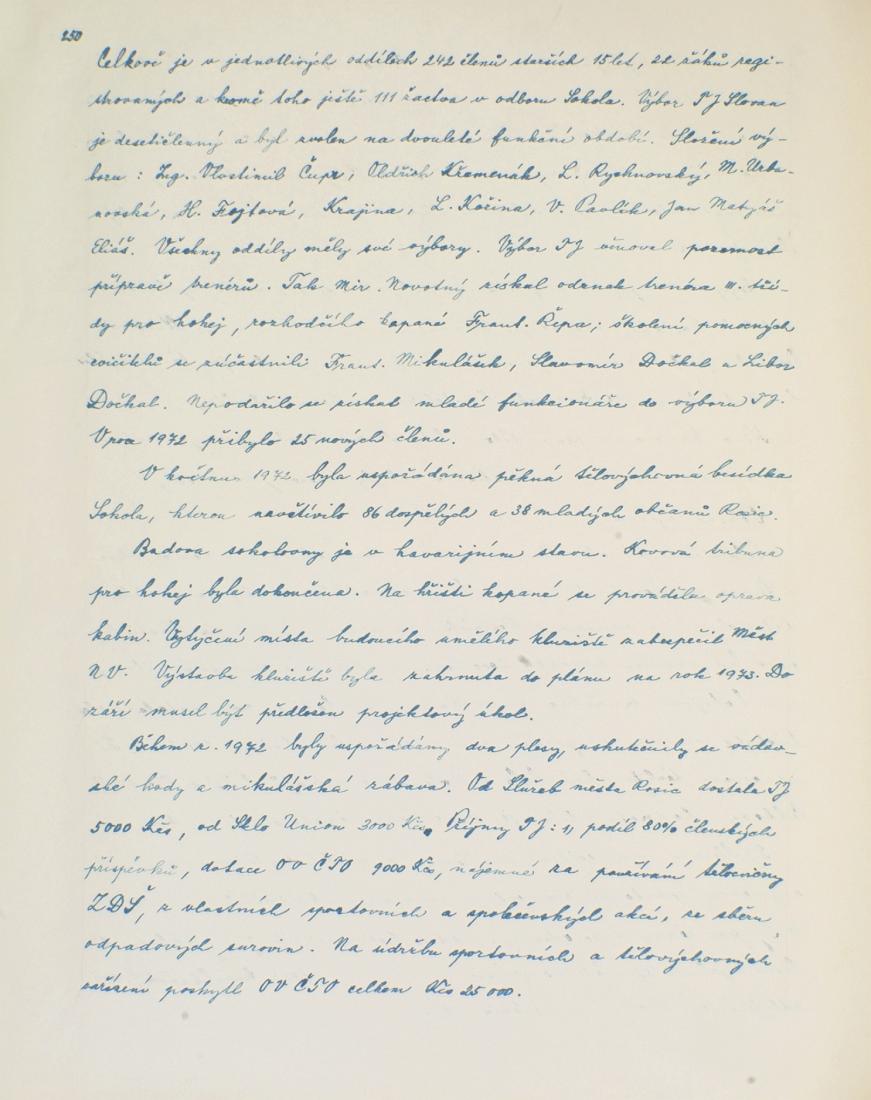 250
Celkově je v jednotlivých oddílech 242 členů starších 15 let, 22 žáků regi-
strovaných a kromě toho ještě 111 žactva v odboru Sokola. Výbor TJ Slovan
je desetičlenný a byl zvolen na dvouleté funkční období. Složení vý-
boru: Ing. Vlastimil Čupr, Oldřich Křemenák, L. Rychnovský, M. Urba-
novská, H. Fojtová, Krajina, L. Kořina, V. Pavlík, Jan Matyáš
Eliáš. Všechny oddíly měly své výbory. Výbor TJ věnoval pozornost
přípravě trenérů. Tak Mir. Novotný získal odznak trenéra III. tří-
dy pro hokej, rozhodčího kopané Frant. Řepa; školení pomocných
cvičitelů se zúčastnili Frant. Mikulášek, Slavomír Dočkal a Libor
Dočkal. Nepodařilo se získat mladé funkcionáře do výboru TJ.
V roce 1972 přibylo 25 nových členů.
V květnu 1972 byla uspořádána pěkná tělovýchovná besídka
Sokola, kterou navštívilo 86 dospělých a 38 mladých občanů Rosic.
Budova sokolovny je v havarijním stavu. Kovová tribuna
pro hokej byla dokončena. Na hřišti kopané se prováděla oprava
kabin. Vytyčení místa budoucího umělého kluziště zabezpečil Měst
NV. Výstavba kluziště byla zahrnuta do plánu na rok 1973. Do
září musel být předložen projektový úkol.
Během r. 1972 byly uspořádány dva plesy, uskutečnily se václav-
ské hody a mikulášská zábava. Od Služeb města Rosic dostala TJ
5000 Kčs, od Sklo Union 3000 Kčs. Příjmy TJ: 1, podíl 80% členských
příspěvků, dotace OV ČTO 9000 Kčs, nájemné za používání tělocvičny
ZDŠ, z vlastních sportovních a společenských akcí, ze sběru
odpadových surovin. Na údržbu sportovních a tělovýchovných
zařízení poskytl OV ČTO celkem Kčs 25 000.